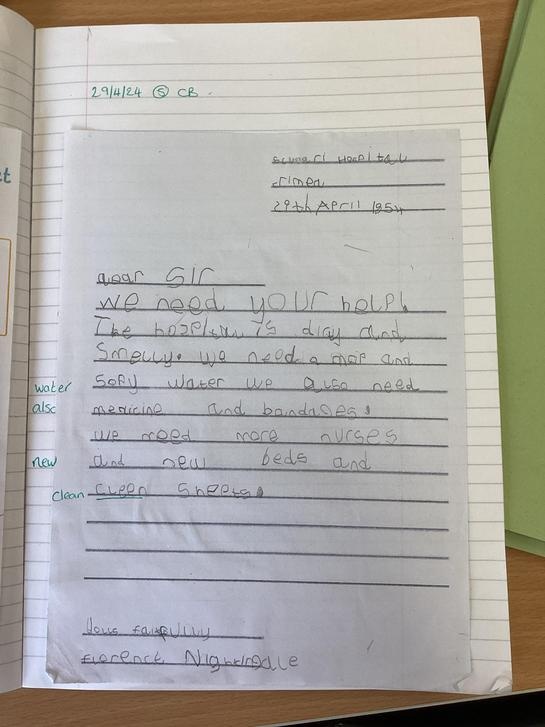 29/4/24 S CB.
scuuarl Hospital
crimea
29th April 1854
Dear Sir
we need your help!
The hospitau is diray and
Smelly. we need a mop and
Sopy water we also need
water
medicine and bandages.
also
we need more nurses
and new beds and
new
cleen sheets.
clean
Yous
Florence Nightingale
t